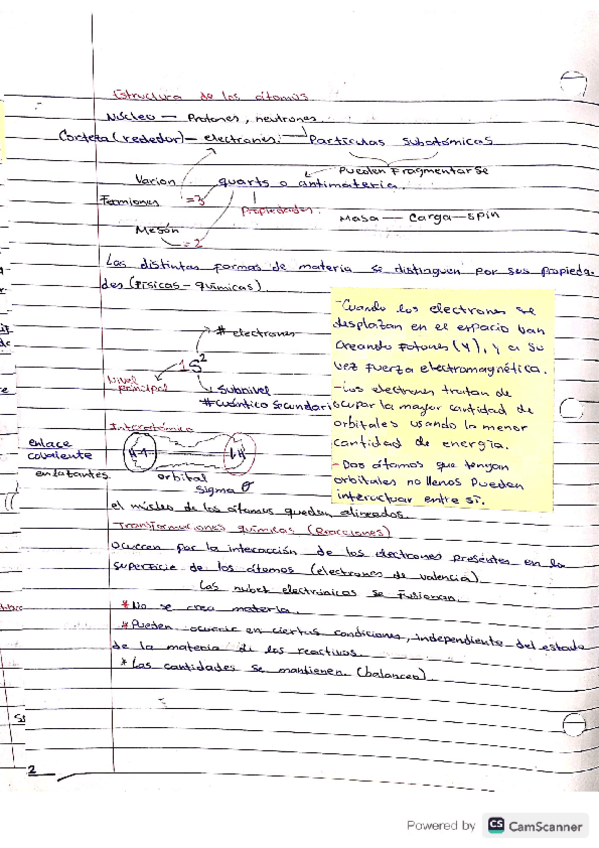 Estructura de los átomos.
Núcleo — Protones, neutrones.
Corteza (rededor) — electrones. Partículas subatómicas
Pueden Fragmentarse
Varion quarts o antimateria.
Fermiones =3 Propiedades.
Masa — Carga — spin
Mesón =2
Las distintas formas de materia se distinguen por sus propieda-
des (físicas - químicas).
# electrones
1S²
Nivel principal
Subnivel
# cuántico secundario
-Cuando los electrones se
desplazan en el espacio van
creando fotones (γ), y a su
vez fuerza electromagnética.
-Los electrones tratan de
ocupar la mayor cantidad de
orbitales usando la menor
cantidad de energía.
-Dos átomos que tengan
orbitales no llenos pueden
interactuar entre sí.
Interatómico
enlace
covalente
orbital
sigma σ
el núcleo de los átomos quedan alineados.
Transformaciones químicas (reacciones)
Ocurren por la interacción de los electrones presentes en la
superficie de los átomos (electrones de valencia)
Las nubes electrónicas se fusionan
*No se crea materia.
*Pueden ocurrir en ciertas condiciones, independiente del estado
de la materia de los reactivos.
*Las cantidades se mantienen. (balanceo)
2
Powered by CS CamScanner